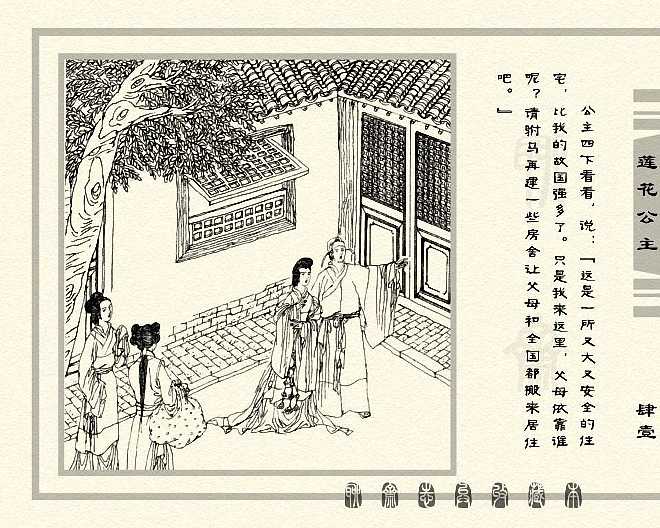 公主四下看看，说：『这是一所又大又安全的住
宅，比我的故国强多了。只是我来这里，父母依靠谁
呢？请驸马再建一些房舍让父母和全国都搬来居住
吧。』
莲花公主
肆壹
聊斋志异收藏本